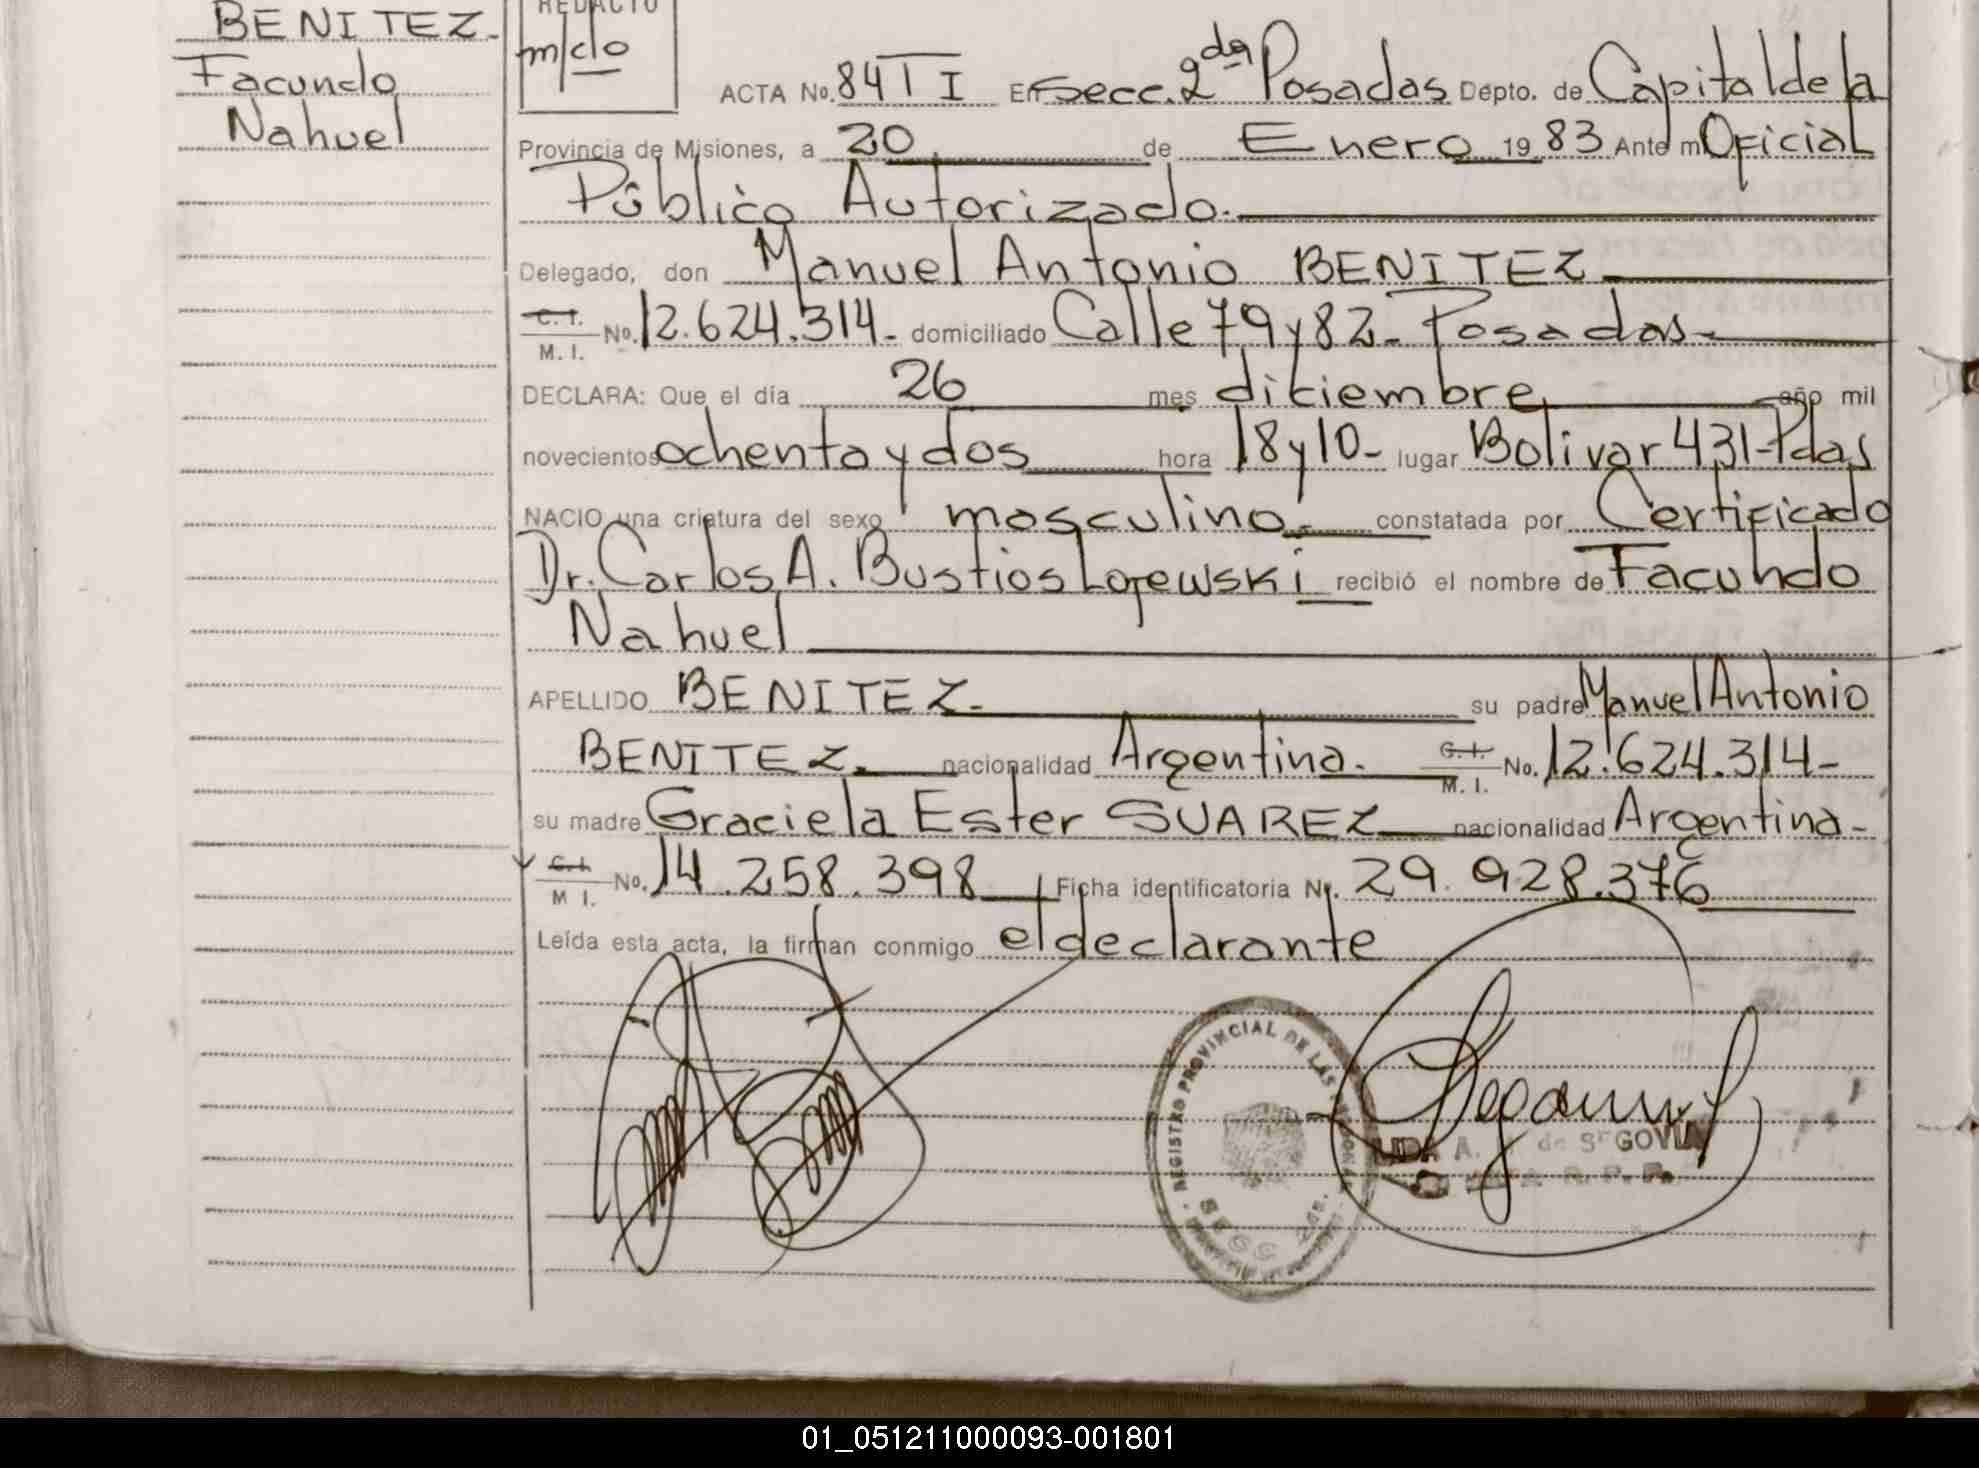 BENITEZ-
Facundo
Nahuel
REDACTO
ACTA No. 84 T I En Secc. 2da Posadas Depto. de Capital de la
Provincia de Misiones, a 20 de Enero 19 83 Ante mi Oficial
Público Autorizado.
Delegado, don Manuel Antonio BENITEZ
C. I. / M. I. No. 12.624.314- domiciliado Calle 79 y 82- Posadas-
DECLARA: Que el día 26 mes diciembre año mil
novecientos ochenta y dos hora 18 y 10- lugar Bolivar 431-Pdas
NACIO una criatura del sexo masculino- constatada por Certificado
Dr. Carlos A. Bustios recibió el nombre de Facundo
Nahuel
APELLIDO BENITEZ- su padre Manuel Antonio
BENITEZ. nacionalidad Argentina. C. I. / M. I. No. 12.624.314-
su madre Graciela Ester SUAREZ nacionalidad Argentina-
C. I. / M I. No. 14.258.398 Ficha identificatoria Nº. 29.928.376
Leída esta acta, la firman conmigo el declarante
REGISTRO PROVINCIAL DE LAS
SECC 2da.
A. de SEGOVIA
R. P. P.
01_051211000093-001801